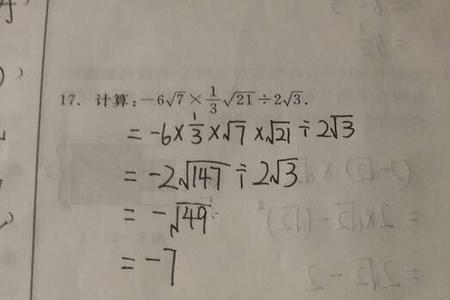 17. 计算:-6√7×1/3√21÷2√3.
=-6×1/3×√7×√21÷2√3
=-2√147÷2√3
=-√49
=-7